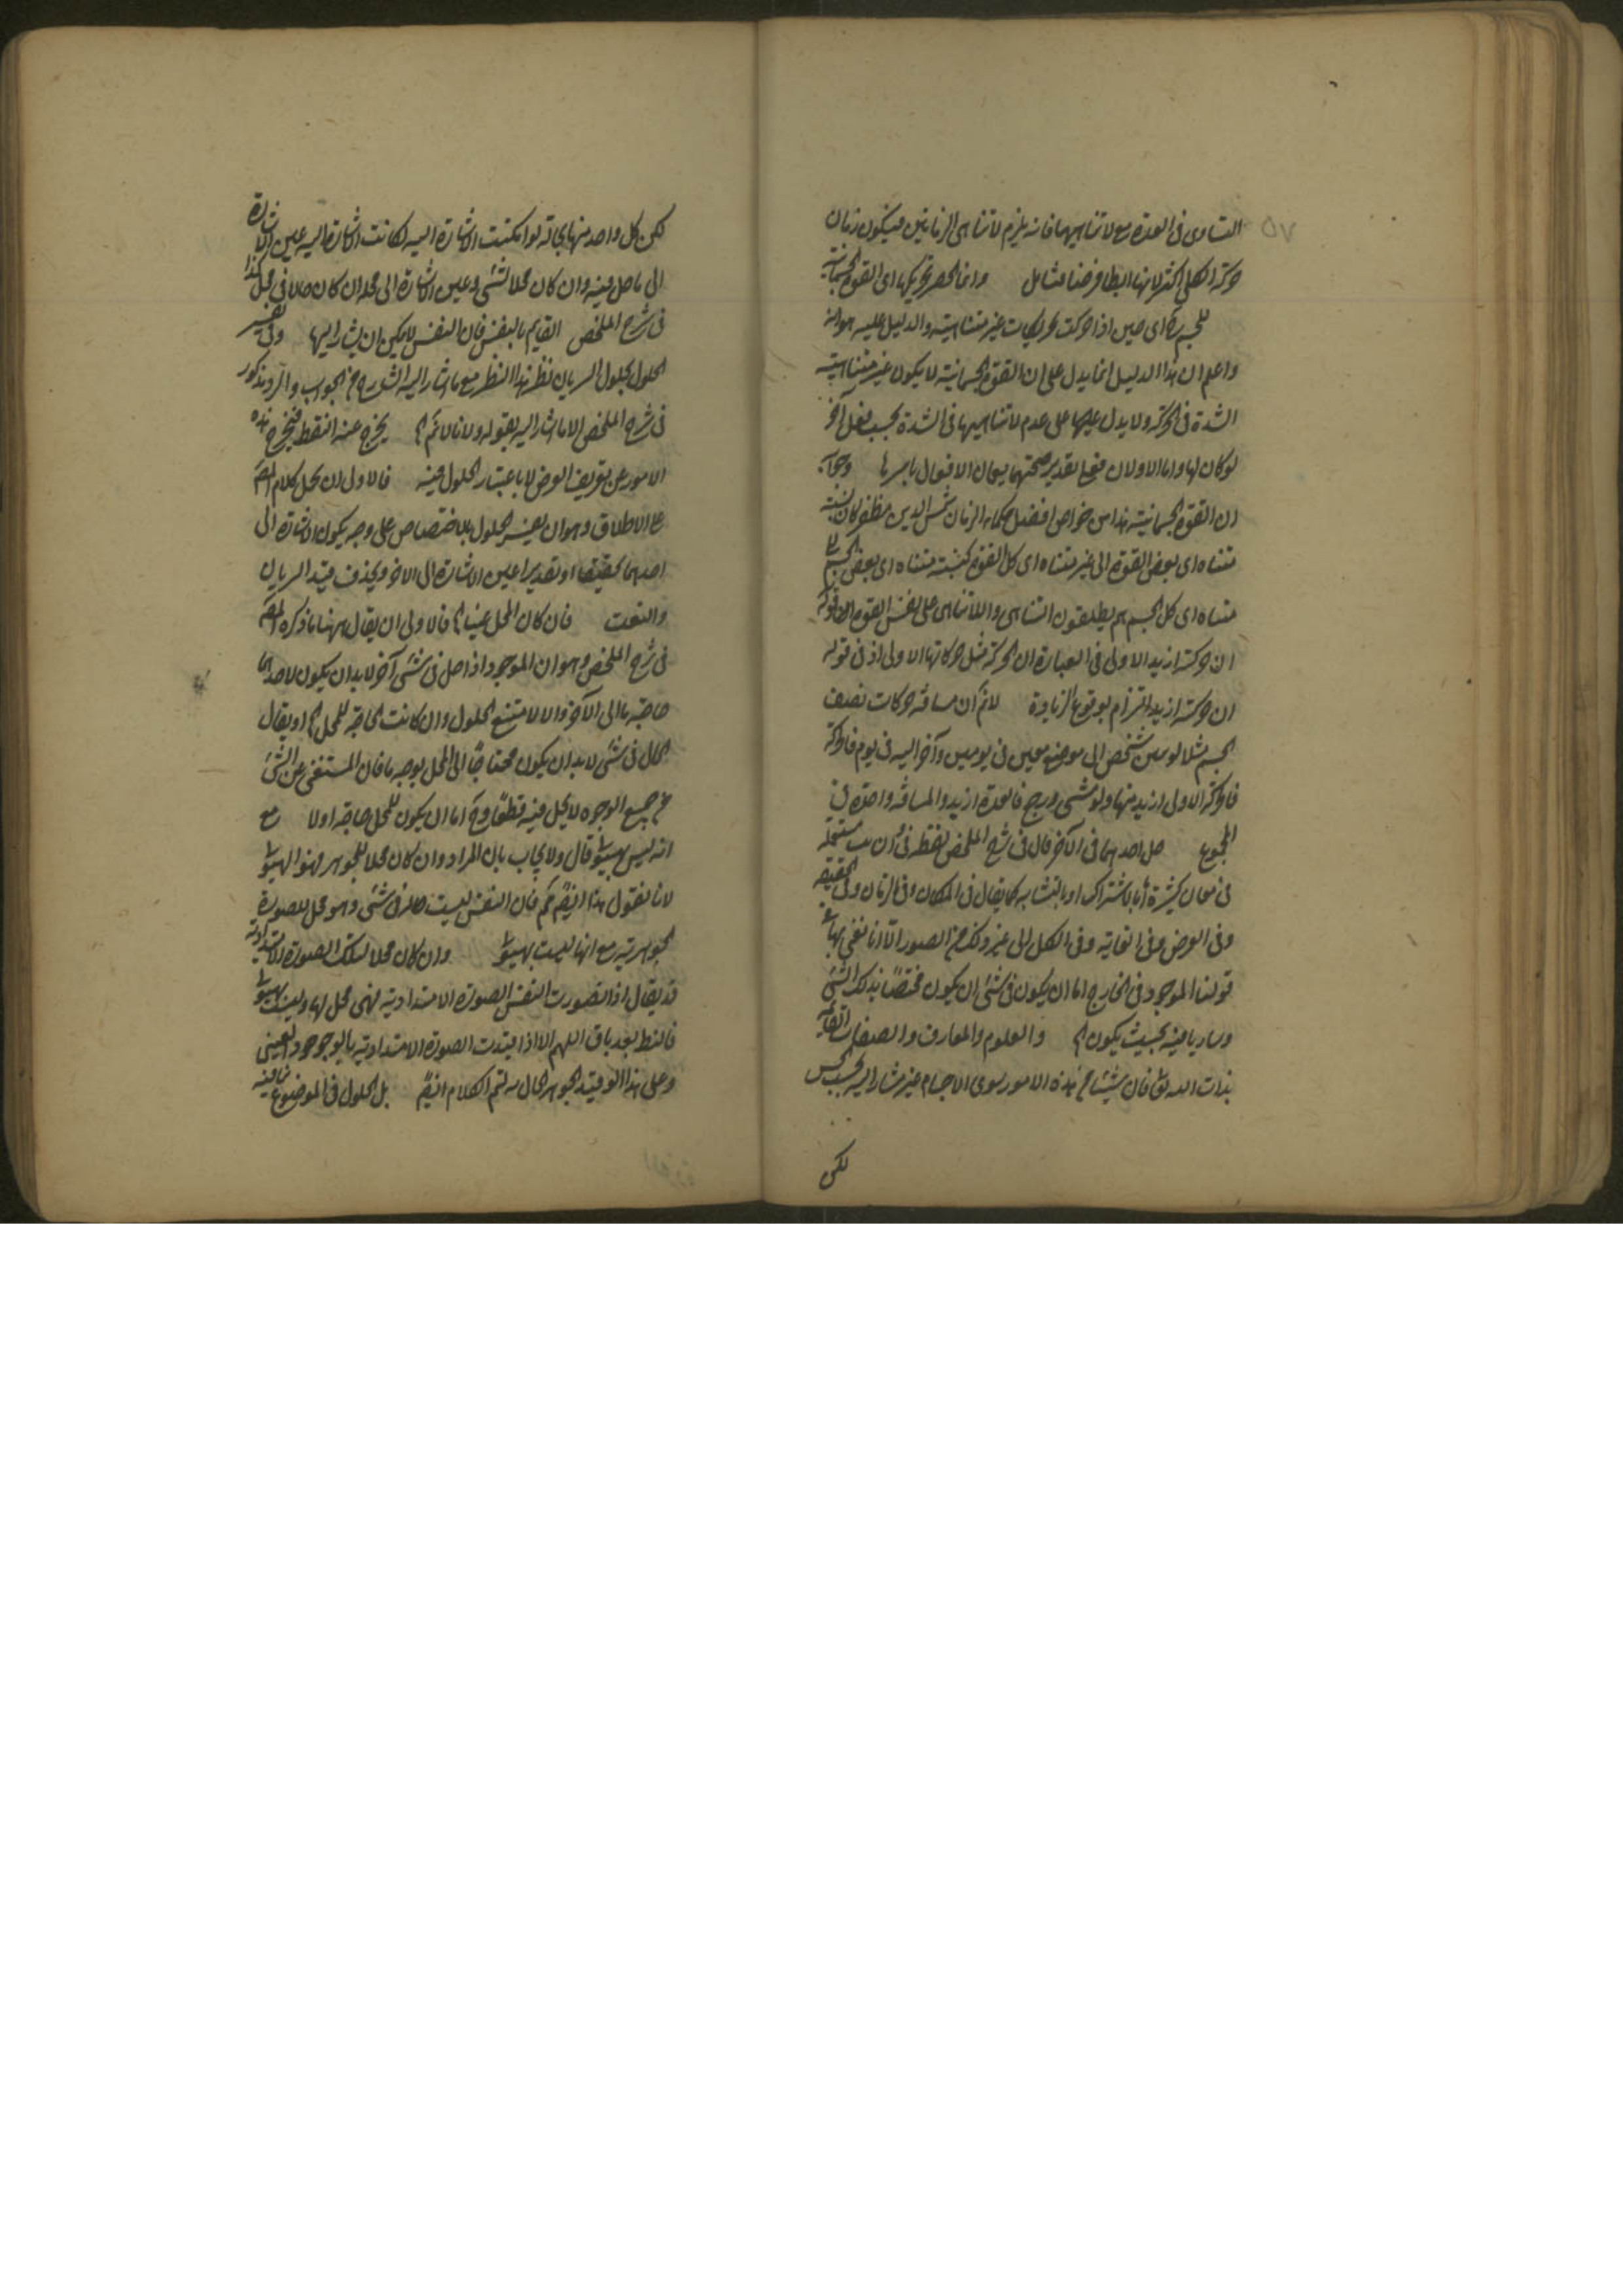 التساوى فى العدة مع لاتناهيهما فانه يلزم لاتناهى الزمانين فيكون زمان
حركة الكل اكثر لانها ابطا فرضنا فتامل وانما انحصر تحريكها اى القوة الجسمانية
للجسم اى حين اذا حركت تحريكات غير متناهية والدليل عليه هو انه
واعلم ان هذا الدليل انما يدل على ان القوة الجسمانية لا يكون غير متناهية
الشدة فى الحركة ولا يدل عليها على عدم لاتناهيها فى الشدة بحسب فعل آخر
لو كان لها واما الاولان فعلى تقدير صحتهما يعمان الافعال باسرها
ان القوة الجسمانية هذا من خواص افضل حكماء الزمان شمس الدين
متناه اى بعض القوة الى غير متناه اى كل القوة كنسبة متناه اى بعض الجسم الى
متناه اى كل الجسم هم يطلقون التناهى واللاتناهى على نفس القوة
ان حركته ازيد الاولى فى العبارة ان الحركة مثل حركاتها الاولى اذ فى قوله
ان حركته ازيد التزام بوقوع الزيادة لانم ان مسافة حركات نصف
الجسم مثلا لو مشى شخص الى موضع معين فى يومين وآخر اليه فى يوم فالحركة
فالحركة الاولى ازيد منها ولو مشى ورجع فالعدة ازيد والمسافة واحدة فى
المجموع حل احدهما فى الآخر قال فى شرح الملخص لفظة فى مستعملة
فى معان كثيرة اما بالاشتراك او بالتشابه كما يقال فى المكان وفى الزمان وفى
وفى العرض وفى الغاية وفى الكل الى غير ذلك من الصور الا انا نعنى بها
قولنا الموجود فى الخارج اما ان يكون فى شئ ان يكون مختصا بذلك الشئ
وساريا فيه بحيث يكون الخ والعلوم والمعارف والصفات القائمة
بذات الله تعالى فان شيئا من هذه الامور سوى الاجسام غير مشار اليه بحسب الحس
لكن
لكن كل واحد منها بحالة لو امكنت الاشارة اليه لكانت الاشارة اليه عين الاشارة
الى ما حل فيه وان كان محلا لشئ وعين الاشارة الى محله ان كان حالا فى محل كذا
فى شرح الملخص القايم بالنفس فان النفس لا يمكن ان يشار اليها وفى تفسير
الحلول بحلول السريان نظر هذا النظر مع ما اشار اليه الشارح من الجواب والرد مذكور
فى شرح الملخص الا ما اشار اليه بقوله ولانا لانم الخ يخرج عنه النقط فيخرج هذه
الامور عن تعريف العرض لا باعتبار الحلول فيه فالاولى ان يحمل كلام المص
على الاطلاق وهو ان يفسر الحلول بالاختصاص على وجه يكون الاشارة الى
احدهما تحقيقا او تقديرا عين الاشارة الى الآخر ويحذف قيد السريان
والنعت فان كان المحل غنيا الخ فالاولى ان يقال ههنا ما ذكره المص
فى شرح الملخص وهو ان الموجود اذا حل فى شئ آخر لا بد ان يكون لاحدهما
حاجة ما الى الآخر والا لامتنع الحلول وان كانت الحاجة للمحل الخ او يقال
الحال فى شئ لا بد ان يكون محتاجا الى المحل بوجه ما فان المستغنى عن الشئ
من جميع الوجوه لا يحل فيه قطعا وح اما ان يكون للمحل حاجة اولا مع
انه ليس بهيولى قال ولا يجاب بان المراد وان كان محلا للجوهر فهو الهيولى
لانا نقول هذا ايضا فان النفس ليست حالة فى شئ وهو محل للصورة
الجوهرية مع انها ليست بهيولى وان كان محلا لتلك الصورة الامتدادية
قد يقال اذا تصورت النفس الصورة الامتدادية فهى محل لها وليست بهيولى
فالنظر بعد باق اللهم الا اذا قيدت الصورة الامتدادية بالوجود العينى
وعلى هذا لو قيد الجوهر الحال به لتم الكلام ايضا بل الحلول فى الموضوع